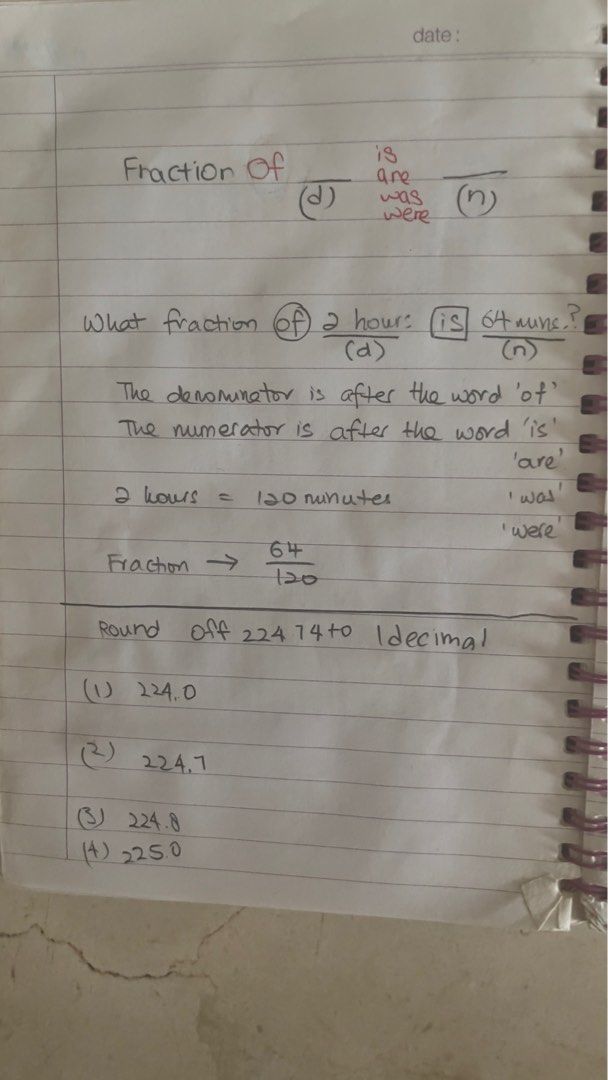 date:
Fraction Of (d) is are was were (n)
What fraction of 2 hours is 64 mins.?
(d) (n)
The denominator is after the word 'of'
The numerator is after the word 'is'
'are'
2 hours = 120 minutes 'was'
'were'
Fraction → 64/120
Round off 224 74 to 1 decimal
(1) 224.0
(2) 224.7
(3) 224.8
(4) 225.0